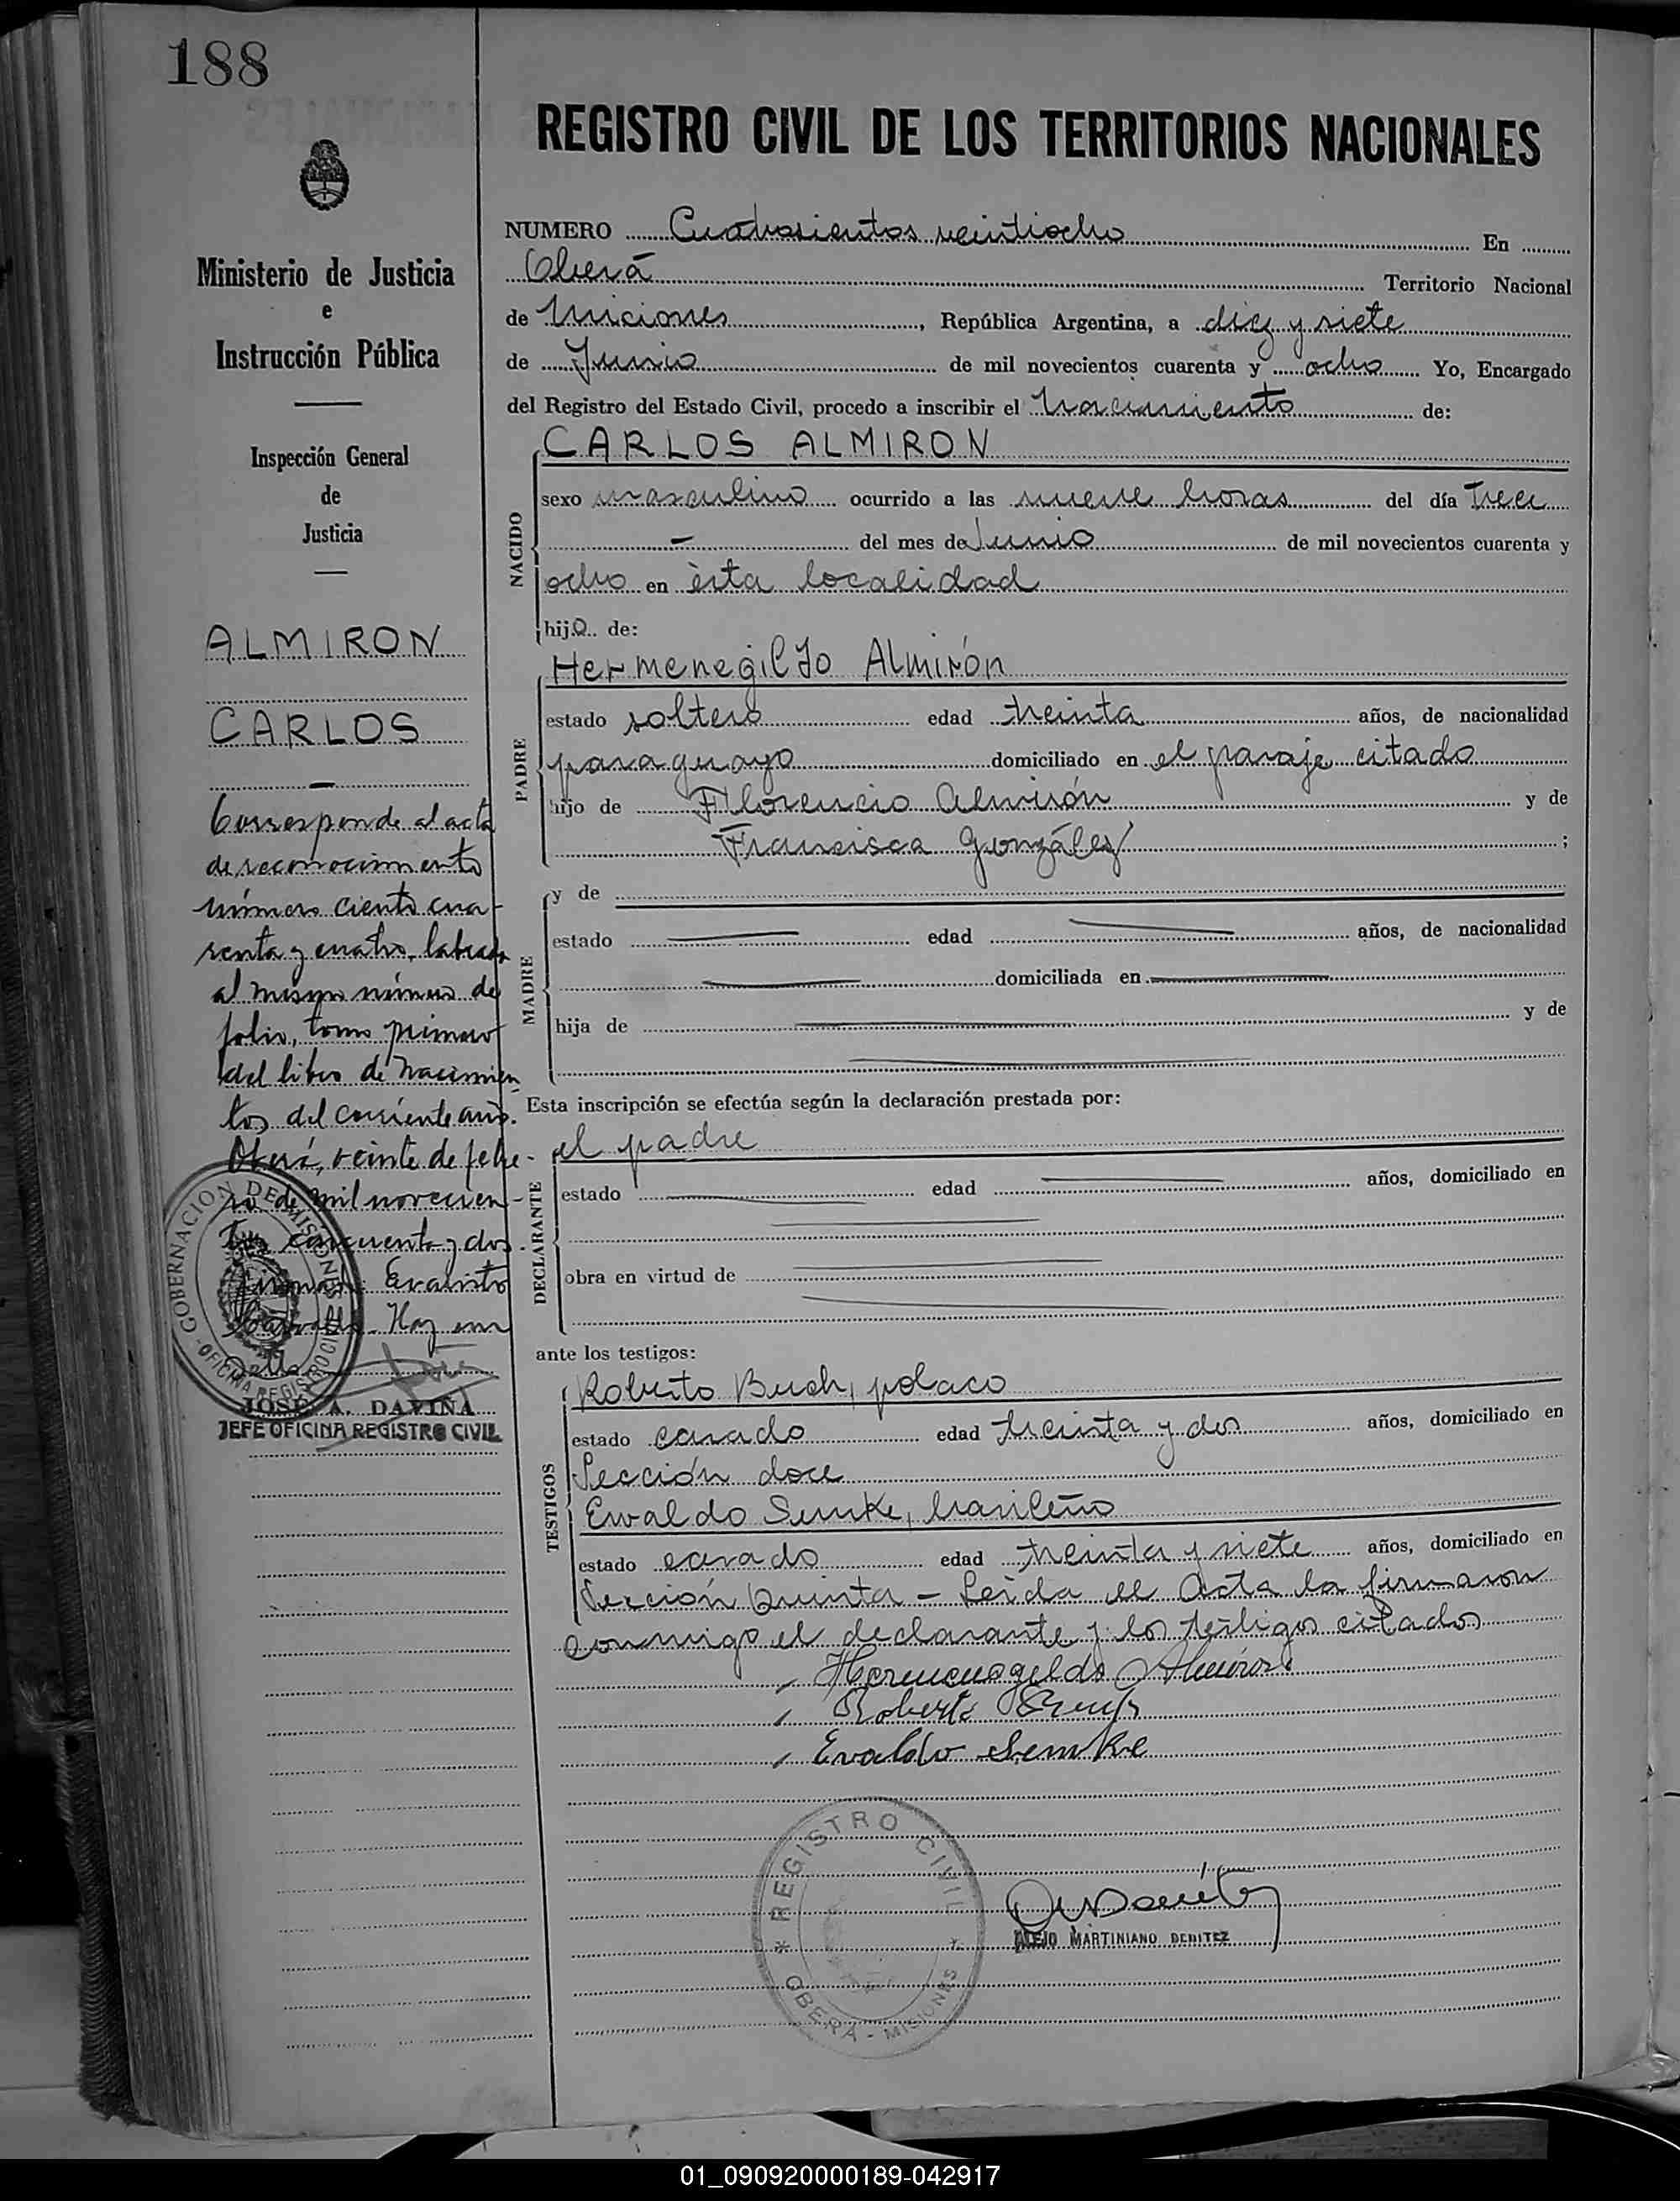 188
REGISTRO CIVIL DE LOS TERRITORIOS NACIONALES
Ministerio de Justicia
e
Instrucción Pública
Inspección General
de
Justicia
ALMIRON
CARLOS
Corresponde al acta
de reconocimiento
número ciento cua-
renta y cuatro, labrada
al mismo número de
folio, tomo primero
del libro de Nacimien
tos del corriente año.
Oberá, veinte de febre-
ro de mil novecien-
tos cincuenta y dos.
Evaristo
Hay un
JOSE A. DAVIÑA
JEFE OFICINA REGISTRO CIVIL
GOBERNACION DE MISIONES
OFICINA REGISTRO CIVIL
NUMERO Cuatrosientos veintiocho En
Oberá Territorio Nacional
de Miciones, República Argentina, a diez y siete
de Junio de mil novecientos cuarenta y ocho Yo, Encargado
del Registro del Estado Civil, procedo a inscribir el Nacimiento de:
NACIDO
CARLOS ALMIRON
sexo masculino ocurrido a las nueve horas del día Trece
- del mes de Junio de mil novecientos cuarenta y
ocho en ésta localidad
hijo de:
PADRE
Hermenegildo Almirón
estado soltero edad treinta años, de nacionalidad
paraguayo domiciliado en el paraje citado
hijo de Florencio Almirón y de
Francisca González ;
MADRE
y de
estado edad años, de nacionalidad
domiciliada en
hija de y de
Esta inscripción se efectúa según la declaración prestada por:
DECLARANTE
el padre
estado edad años, domiciliado en
obra en virtud de
ante los testigos:
TESTIGOS
Roberto Buch, polaco
estado casado edad treinta y dos años, domiciliado en
Sección doce
Ewaldo Semke, brasileño
estado casado edad treinta y siete años, domiciliado en
Sección Quinta - Leida el Acta la firmaron
conmigo el declarante y los testigos citados
Hermenegildo Almiron
Roberto
Evaldo Semke
REGISTRO CIVIL
OBERA - MISIONES
ALEJO MARTINIANO BENITEZ
01_090920000189-042917